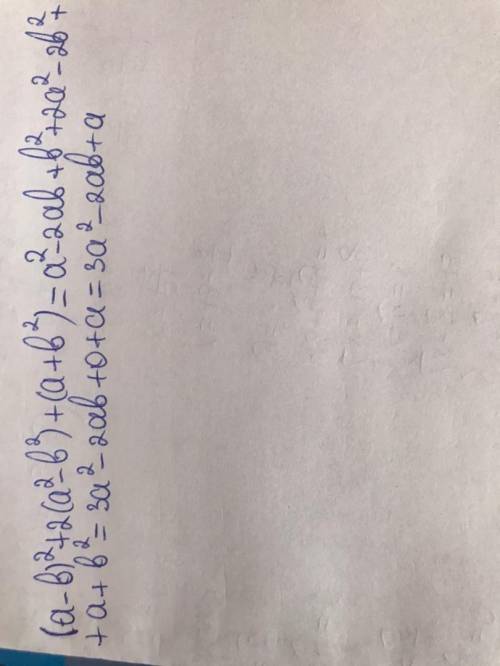 (a-b)²+2(a²-b²)+(a+b²)=a²-2ab+b²+2a²-2b²+
+a+b²=3a²-2ab+0+a=3a²-2ab+a